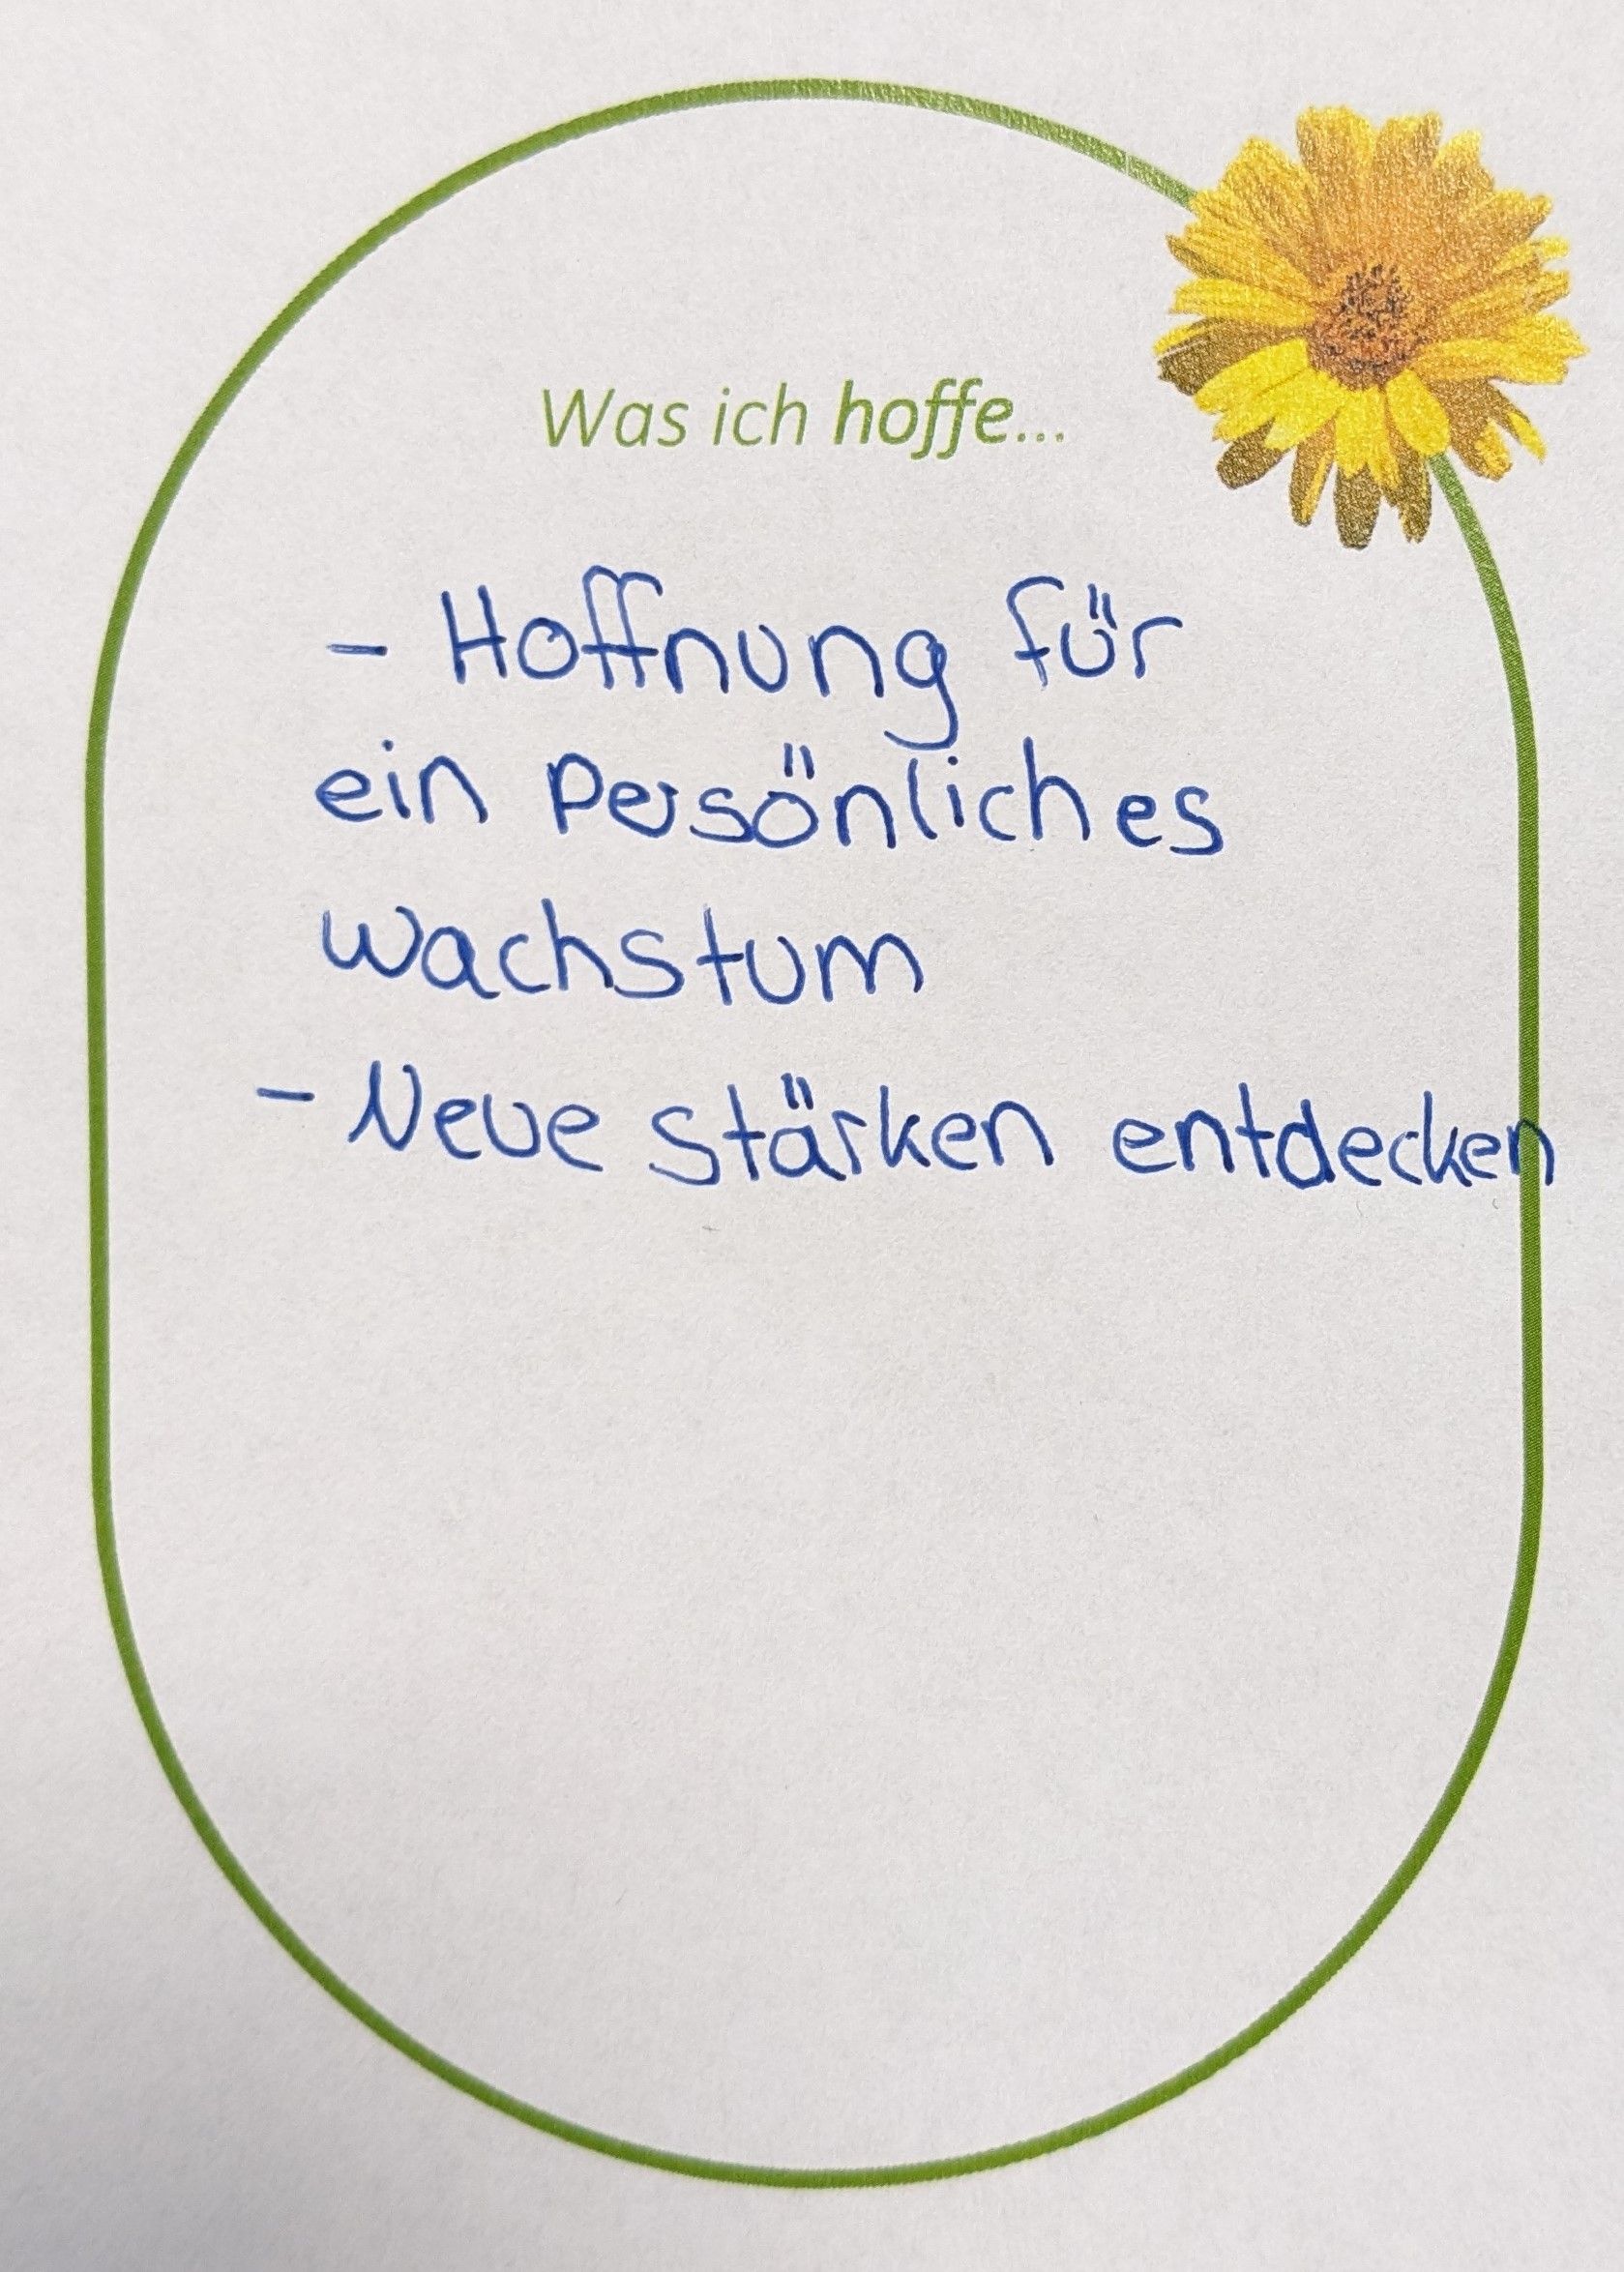 Was ich hoffe...
- Hoffnung für
ein Persönliches
Wachstum
- Neue Stärken entdecken